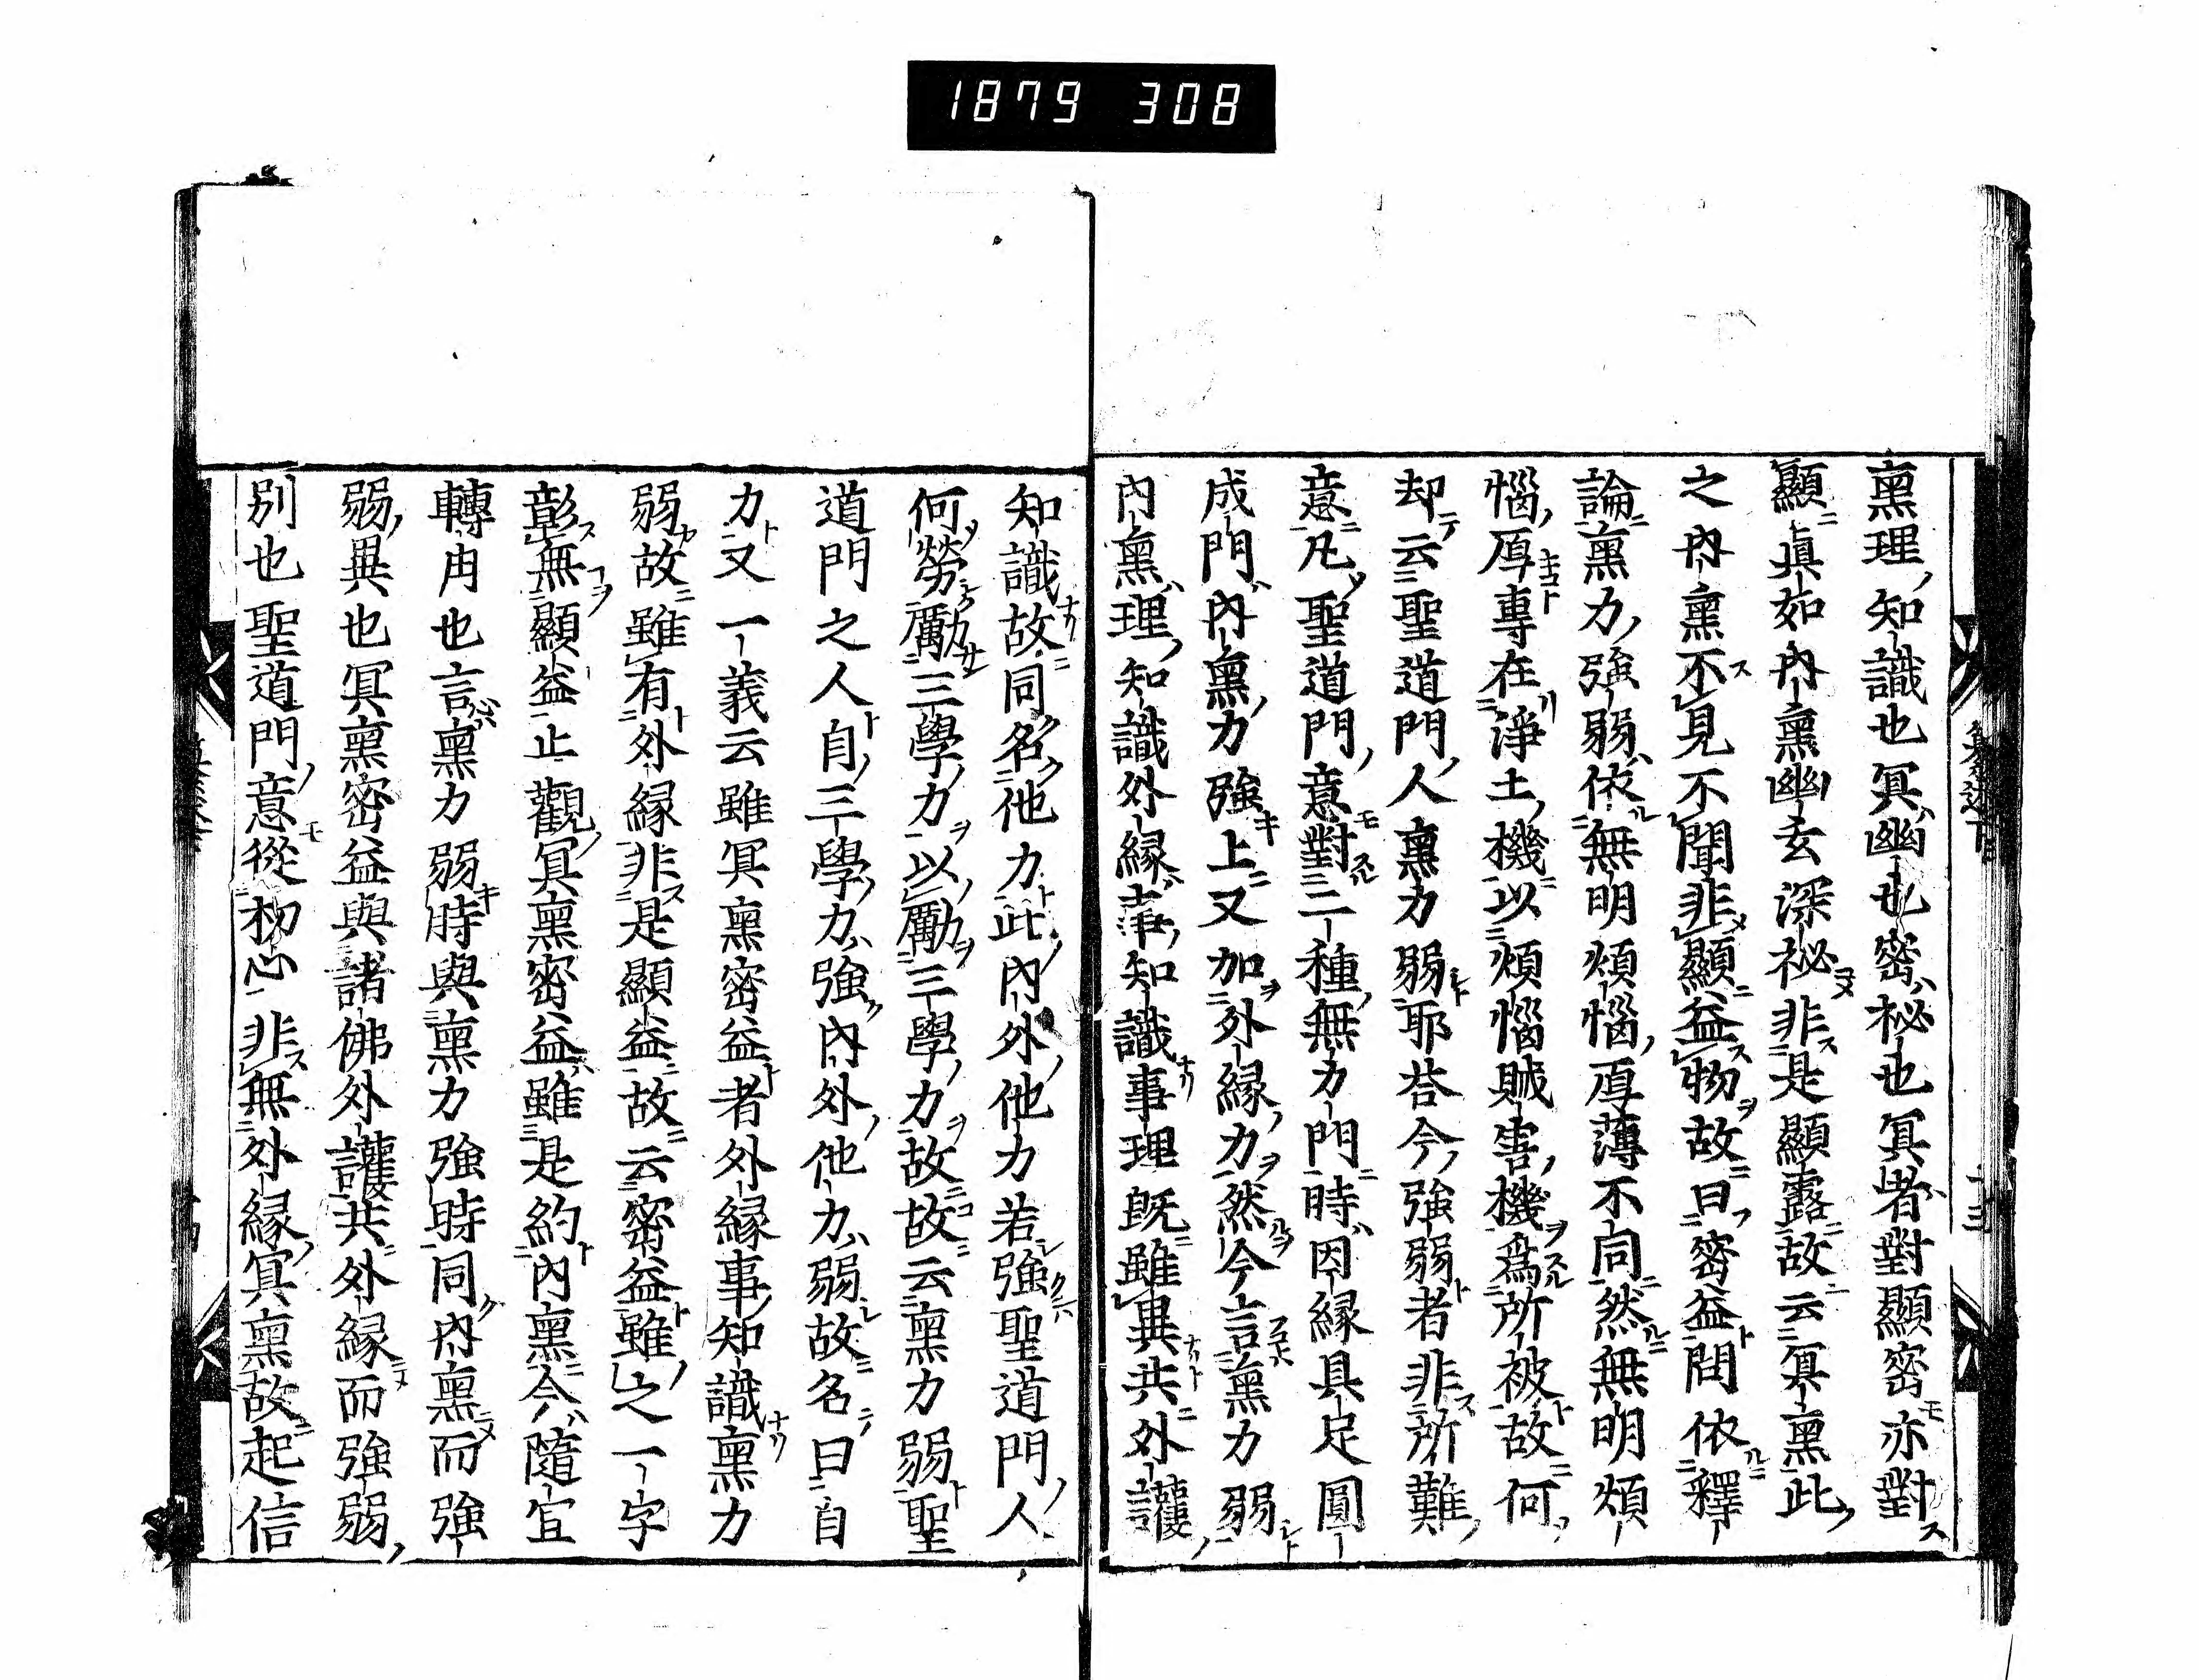 1879 308
熏理知識也冥幽也密祕也冥者對顯密亦對
顯眞如内熏幽玄深祕非是顯露故云冥熏此
之内熏不見不聞非顯益物故曰密益問依釋
論熏力強弱依無明煩惱厚薄不同然無明煩
惱厚專在淨土機以煩惱賊害機爲所被故何
却云聖道門人熏力弱耶荅今強弱者非所難
意凡聖道門意對二種無力門時因縁具足圓
成門内熏力強上又加外縁力然今言熏力弱
内熏理知識外縁事知識事理既雖異共外護
知識故同名他力此内外他力若強聖道門人
何勞勵三學力以勵三學力故故云熏力弱聖
道門之人自三學力強内外他力弱故名曰自
力又一義云雖冥熏密益者外縁事知識熏力
弱故雖有外縁非是顯益故云密益雖之一字
彰無顯益止觀冥熏密益雖是約内熏今隨宜
轉用也言熏力弱時與熏力強時同内熏而強
弱異也冥熏密益與諸佛外護共外縁而強弱
別也聖道門意從初心非無外縁冥熏故起信